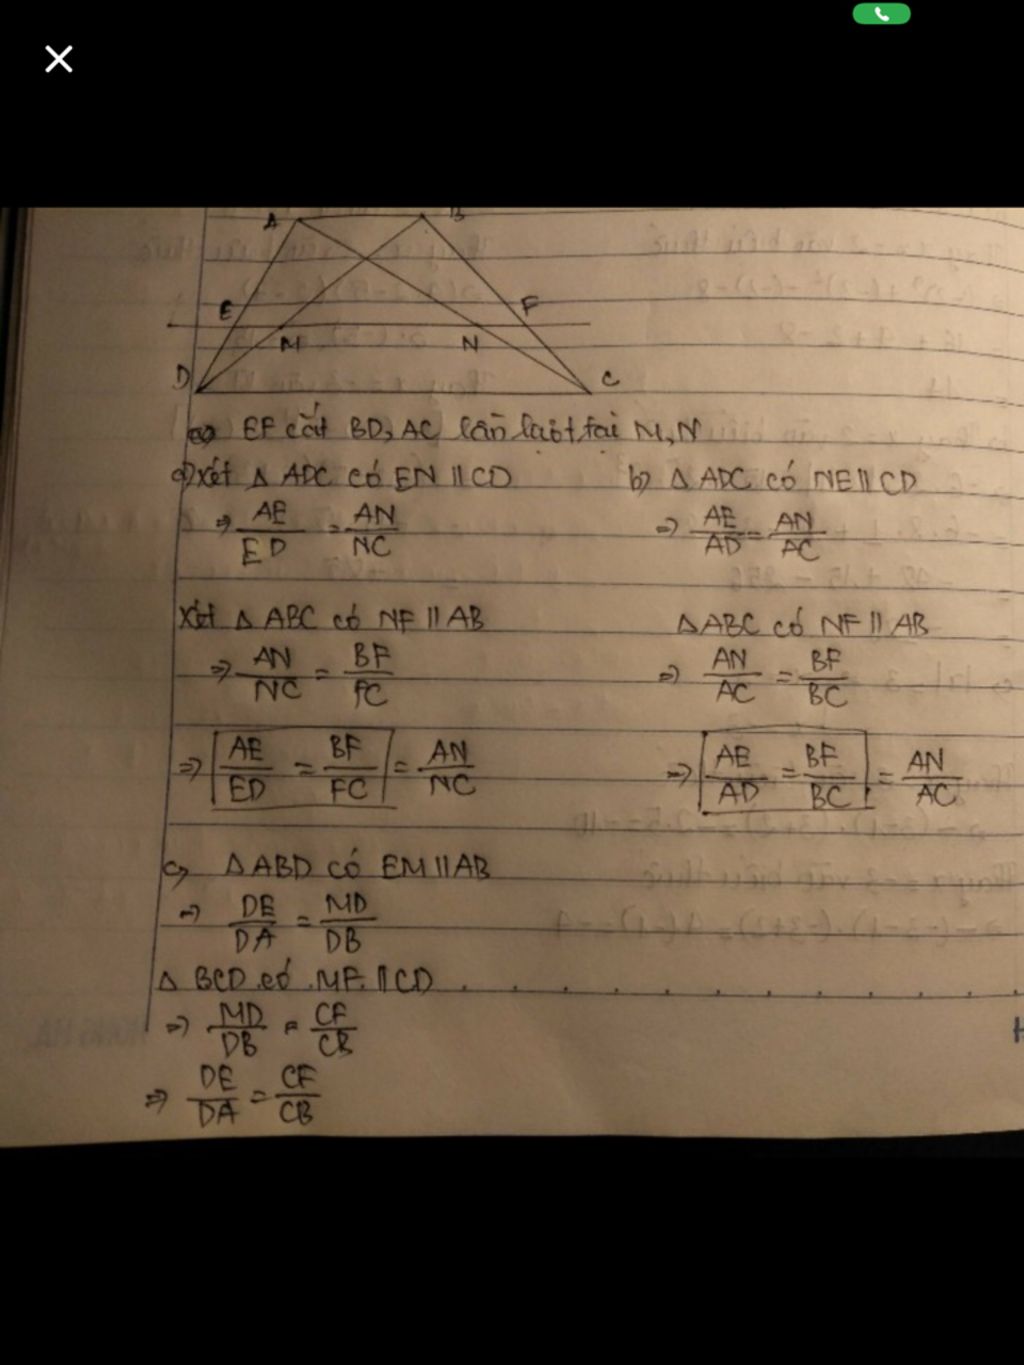 A B
E F
M N
D C
EF cắt BD, AC lần lượt tại M, N
a) Xét Δ ADC có EN // CD
⇒ AE/ED = AN/NC
Xét Δ ABC có NF // AB
⇒ AN/NC = BF/FC
⇒ AE/ED = BF/FC = AN/NC
b) Δ ADC có NE // CD
⇒ AE/AD = AN/AC
ΔABC có NF // AB
⇒ AN/AC = BF/BC
⇒ AE/AD = BF/BC = AN/AC
c) ΔABD có EM // AB
⇒ DE/DA = MD/DB
Δ BCD có MF // CD
⇒ MD/DB = CF/CB
⇒ DE/DA = CF/CB